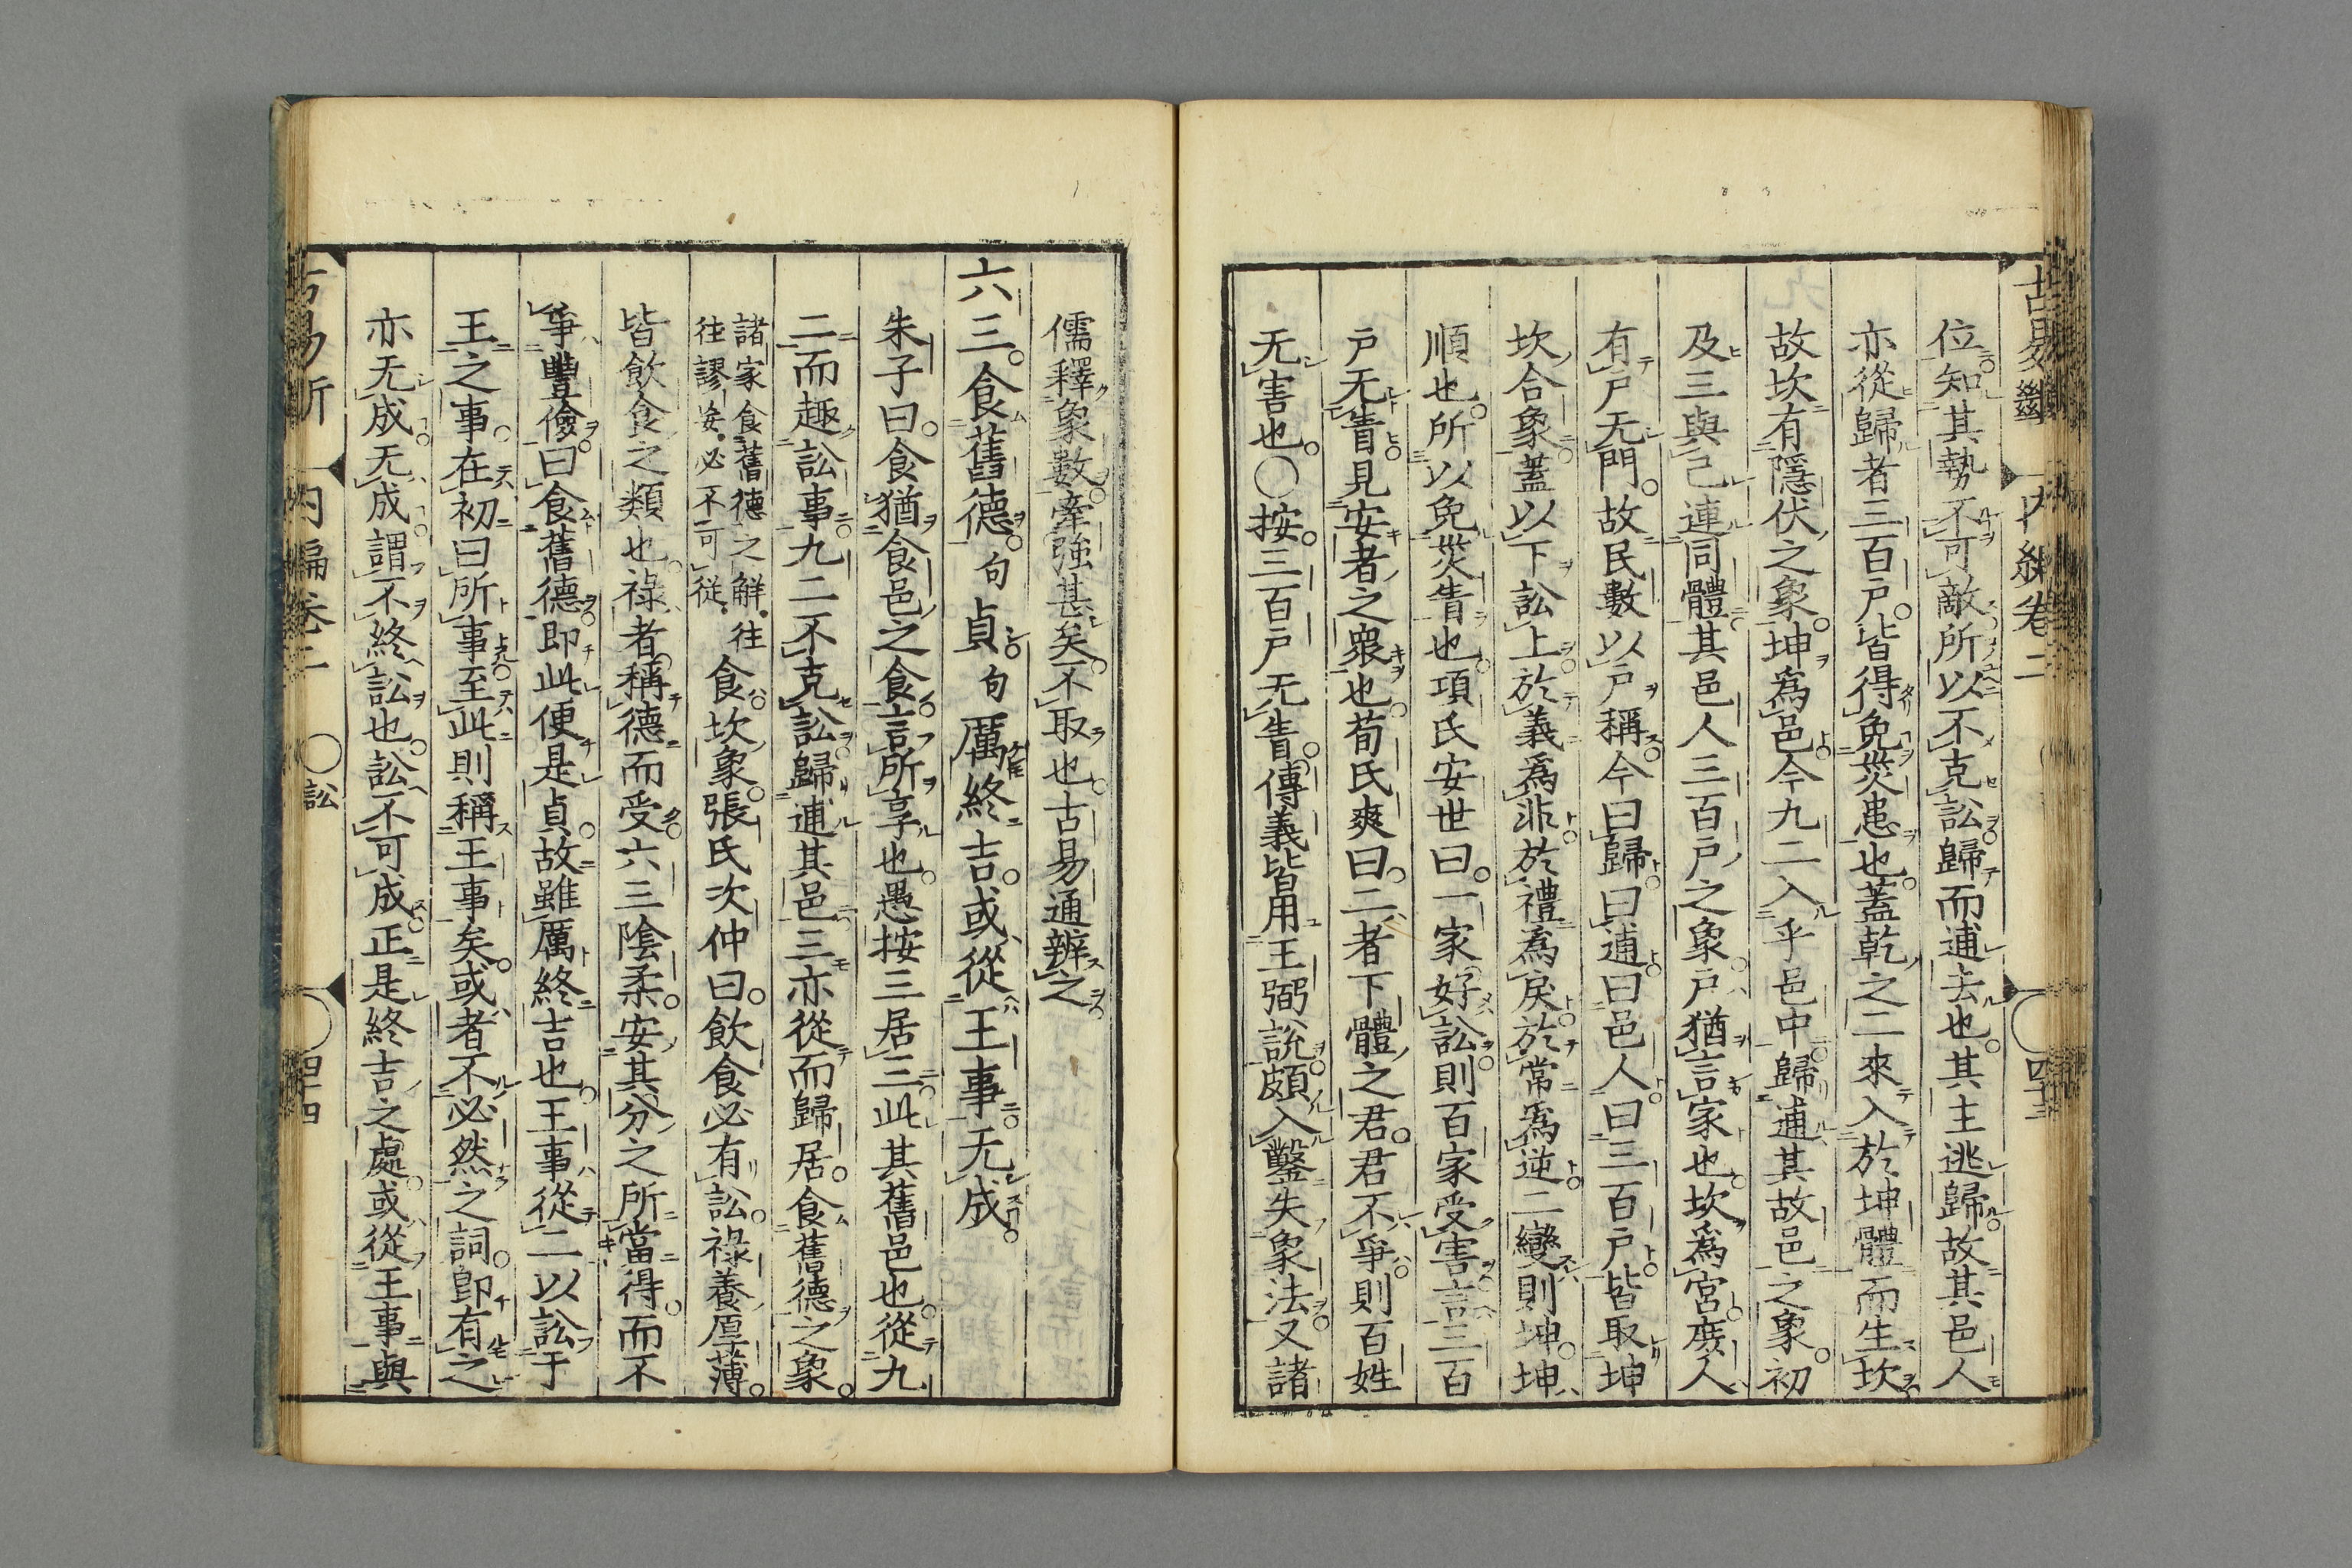 位知其勢不可敵所以不克訟歸而逋去也其主逃歸故其邑人
亦從歸者三百戸皆得免災患也蓋乾之二來入於坤體而生坎
故坎有隱伏之象坤爲邑今九二入乎邑中歸逋其故邑之象初
及三與己連同體其邑人三百戸之象戸猶言家也坎爲宮庶人
有戸无門故民數以戸稱今曰歸曰逋曰邑人曰三百戸皆取坤
坎合象蓋以下訟上於義爲非於禮爲戾於常爲逆二變則坤坤
順也所以免災眚也項氏安世曰一家好訟則百家受害言三百
戸无眚見安者之衆也荀氏爽曰二者下體之君君不爭則百姓
无害也○按三百戸无眚傳義皆用王弼説頗入鑿失象法又諸
内編卷二
四十三
儒釋象數牽強甚矣不取也古易通辨之
六三食舊德句貞句厲終吉或從王事无成
朱子曰食猶食邑之食言所享也愚按三居三此其舊邑也從九
二而趣訟事九二不克訟歸逋其邑三亦從而歸居食舊德之象
諸家食舊德之解往
往謬妄必不可從
食坎象張氏次仲曰飲食必有訟祿養厚薄
皆飲食之類也祿者稱德而受六三陰柔安其分之所當得而不
爭豐儉曰食舊德即此便是貞故雖厲終吉也王事從二以訟于
王之事在初曰所事至此則稱王事矣或者不必然之詞即有之
亦无成无成謂不終訟也訟不可成正是終吉之處或從王事與
内編卷二 ○訟
四十四